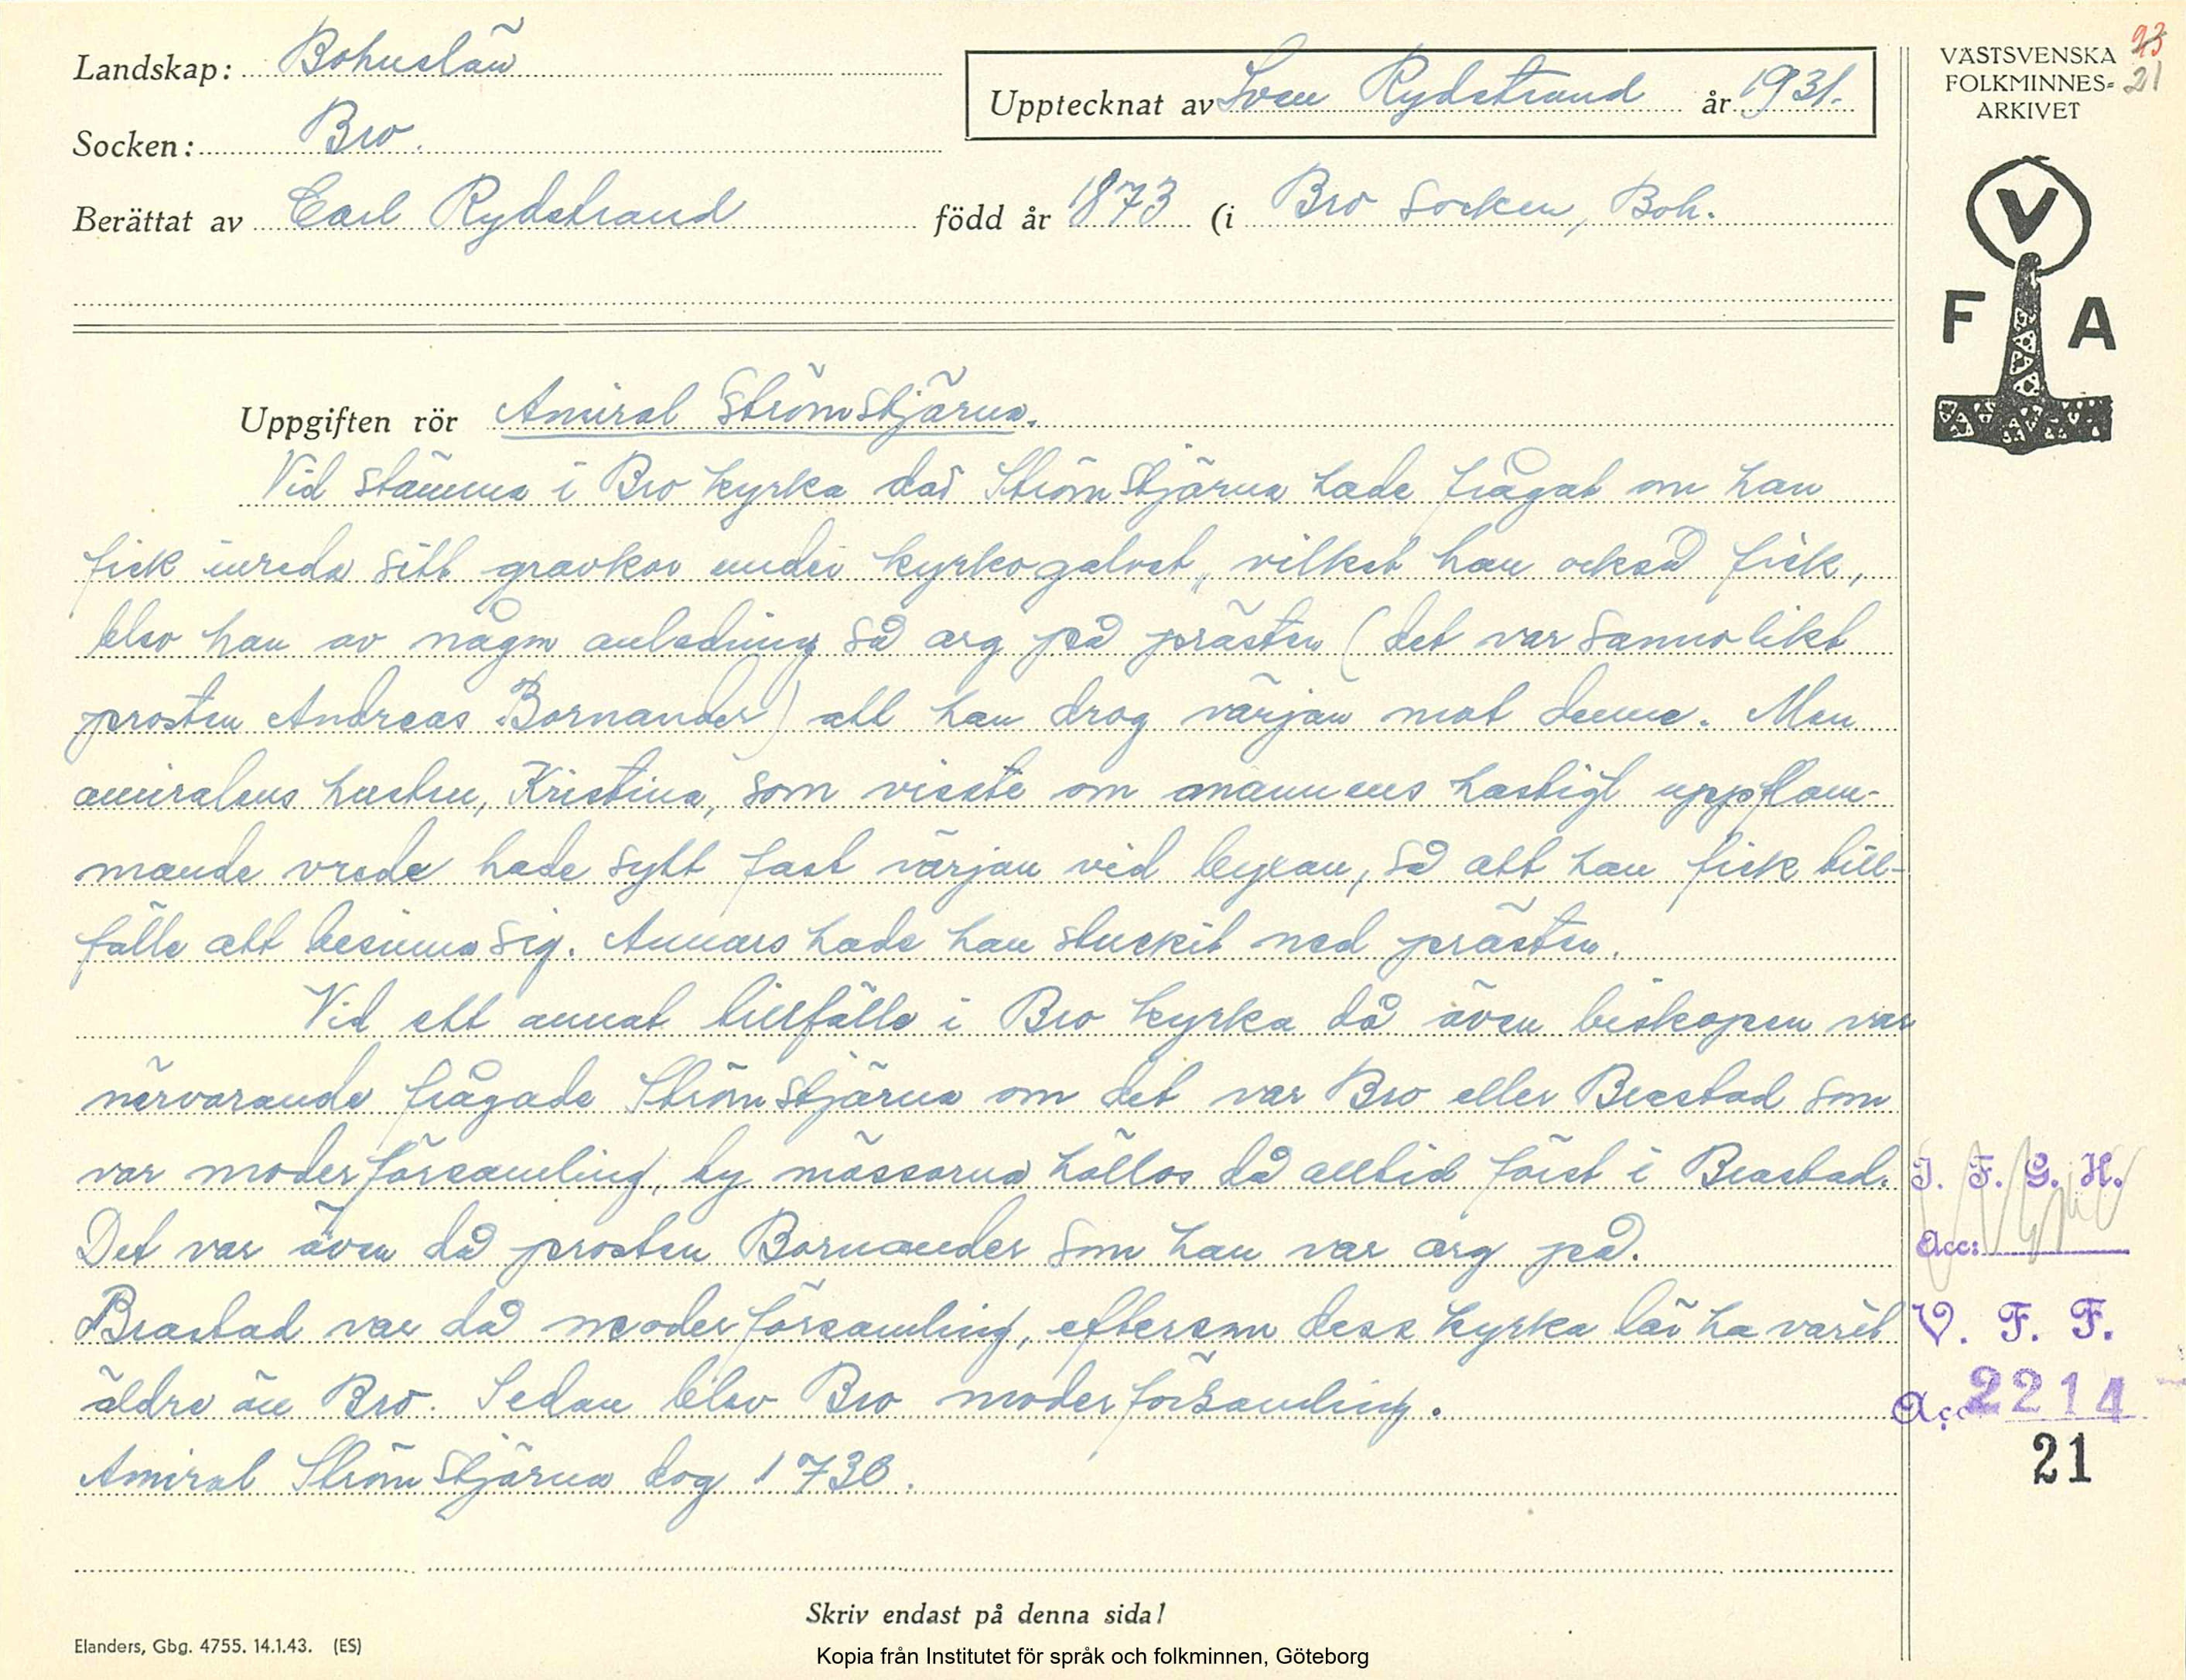 Landskap: Bohuslän
Socken: Bro.
Berättat av Carl Rydstrand född år 1873 (i Bro socken, Boh.
Upptecknat av Sven Rydstrand år 1931.
Uppgiften rör Amiral Strömstjärna.
Vid stämma i Bro kyrka där Strömstjärna hade frågat om han
fick inreda sitt gravkor under kyrkogolvet, vilket han också fick,
blev han av någon anledning så arg på prästen (det var sannolikt
prosten Andreas Bornander) att han drog värjan mot denne. Men
amiralens hustru, Kristina, som visste om mannens hastigt uppflam-
mande vrede hade sytt fast värjan vid byxan, så att han fick till-
fälle att besinna sig. Annars hade han stuckit ned prästen.
Vid ett annat tillfälle i Bro kyrka då även biskopen var
närvarande frågade Strömstjärna om det var Bro eller Brastad som
var moderförsamling, ty mässorna höllos då alltid först i Brastad.
Det var även då prosten Bornander som han var arg på.
Brastad var då moderförsamling, eftersom dess kyrka lär ha varit
äldre än Bro. Sedan blev Bro moderförsamling.
Amiral Strömstjärna dog 1730.
Skriv endast på denna sida!
Elanders, Gbg. 4755. 14.1.43. (ES)
Kopia från Institutet för språk och folkminnen, Göteborg
23
VÄSTSVENSKA
FOLKMINNES= 21
ARKIVET
V
F A
I. F. G. H.
Acc:
V. F. F.
Acc 2214
21